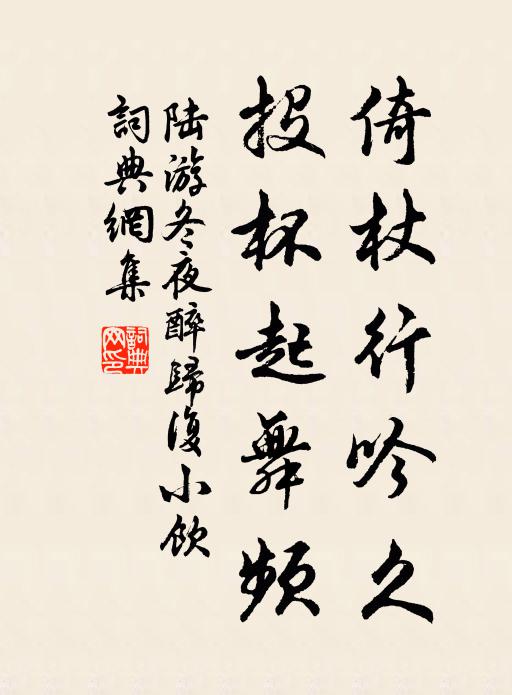 倚杖行吟久
投杯起舞頻
陆游冬夜醉歸復小飲
詞典網集
詞典网印